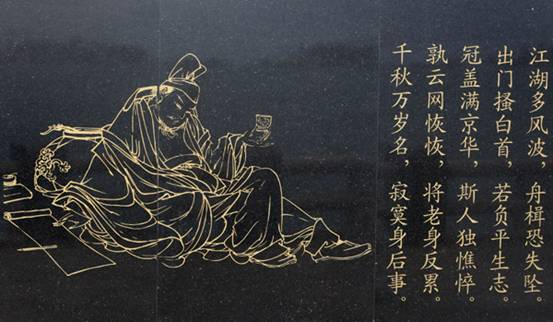 江湖多风波，舟楫恐失坠。
出门搔白首，若负平生志。
冠盖满京华，斯人独憔悴。
孰云网恢恢，将老身反累。
千秋万岁名，寂寞身后事。